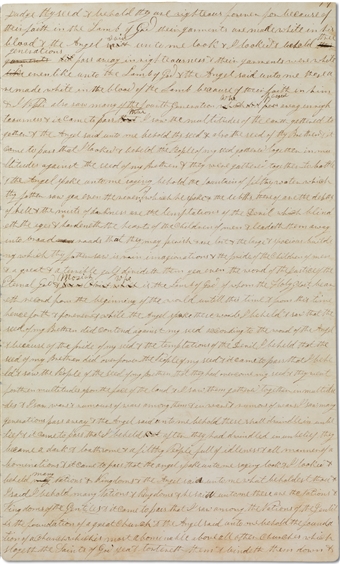 Judge thy seed & behold they are righteous forever for because of
their faith in the Lamb of God their garments are made white in his
blood & the Angel said unto me look & I looked & beheld three
generations
pass away in righteousness & their garments were white
even like unto the Lamb of God & the Angel said unto me these are
made white in the blood of the Lamb because of their faith in him
& I Nephi also saw many of the fourth generation which pass away in righ
teousness & it came to pass that I saw the multitudes of the earth gathered to
gether & the Angel said unto me behold thy seed & also the seed of thy Brethren & it
came to pass that I looked & beheld the People of my seed gathered together in mu
ltitudes against the seed of my brethren & they were gathered together to battle
& the Angel spake unto me saying behold the fountain of filthy water which
thy father saw yea even the river of which he spake & the depths thereof are the depths
of hell & the mists of darkness are the temptations of the Devil which blind
eth the eyes & hardeneth the hearts of the Children of men & leadeth them away
into broad roads that they may perish & are lost & the large & spacious buildi
ng which thy father saw is vain imaginations & the pride of the Children of men
& a great & a terrible gulf divideth them yea even the word of the justice of the
Eternal God & Messiah which is the Lamb of God of whom the Holy Ghost bear
eth record from the beginning of the world until this time & from this time
henceforth & forever & while the Angel spake these words I beheld & saw that the
seed of my Brethren did contend against my seed according to the word of the Angel
& because of the pride of my seed & the temptations of the Devil I beheld that the
seed of my Brethren did overpower the People of my seed & it came to pass that I beheld
& saw the People of the seed of my Brethren that they had overcome my seed & they went
forth in multitudes upon the face of the land & I saw them gathered together in multitu
des & I saw wars & rumors of wars among them & in wars & rumors of wars I saw many
generations pass away & the Angel said unto me behold these shall dwindle in unbe
lief & it came to pass that I beheld after they had dwindled in unbelief they
became a dark & loathsome & a filthy People full of idleness & all manner of a
bominations & it came to pass that the angel spake unto me saying look & I looked &
beheld many Nations & Kingdoms & the Angel said unto me what beholdest thou &
I said I behold many Nations & Kingdoms & he said unto me these are the Nations &
Kingdoms of the Gentiles & it came to pass that I saw among the Nations of the Gentiles
the foundation of a great Church & the Angel said unto me behold the founda
tion of a Church which is most abominable above all other Churches which
slayeth the Saints of God yea & tortureth them & bindeth them down &